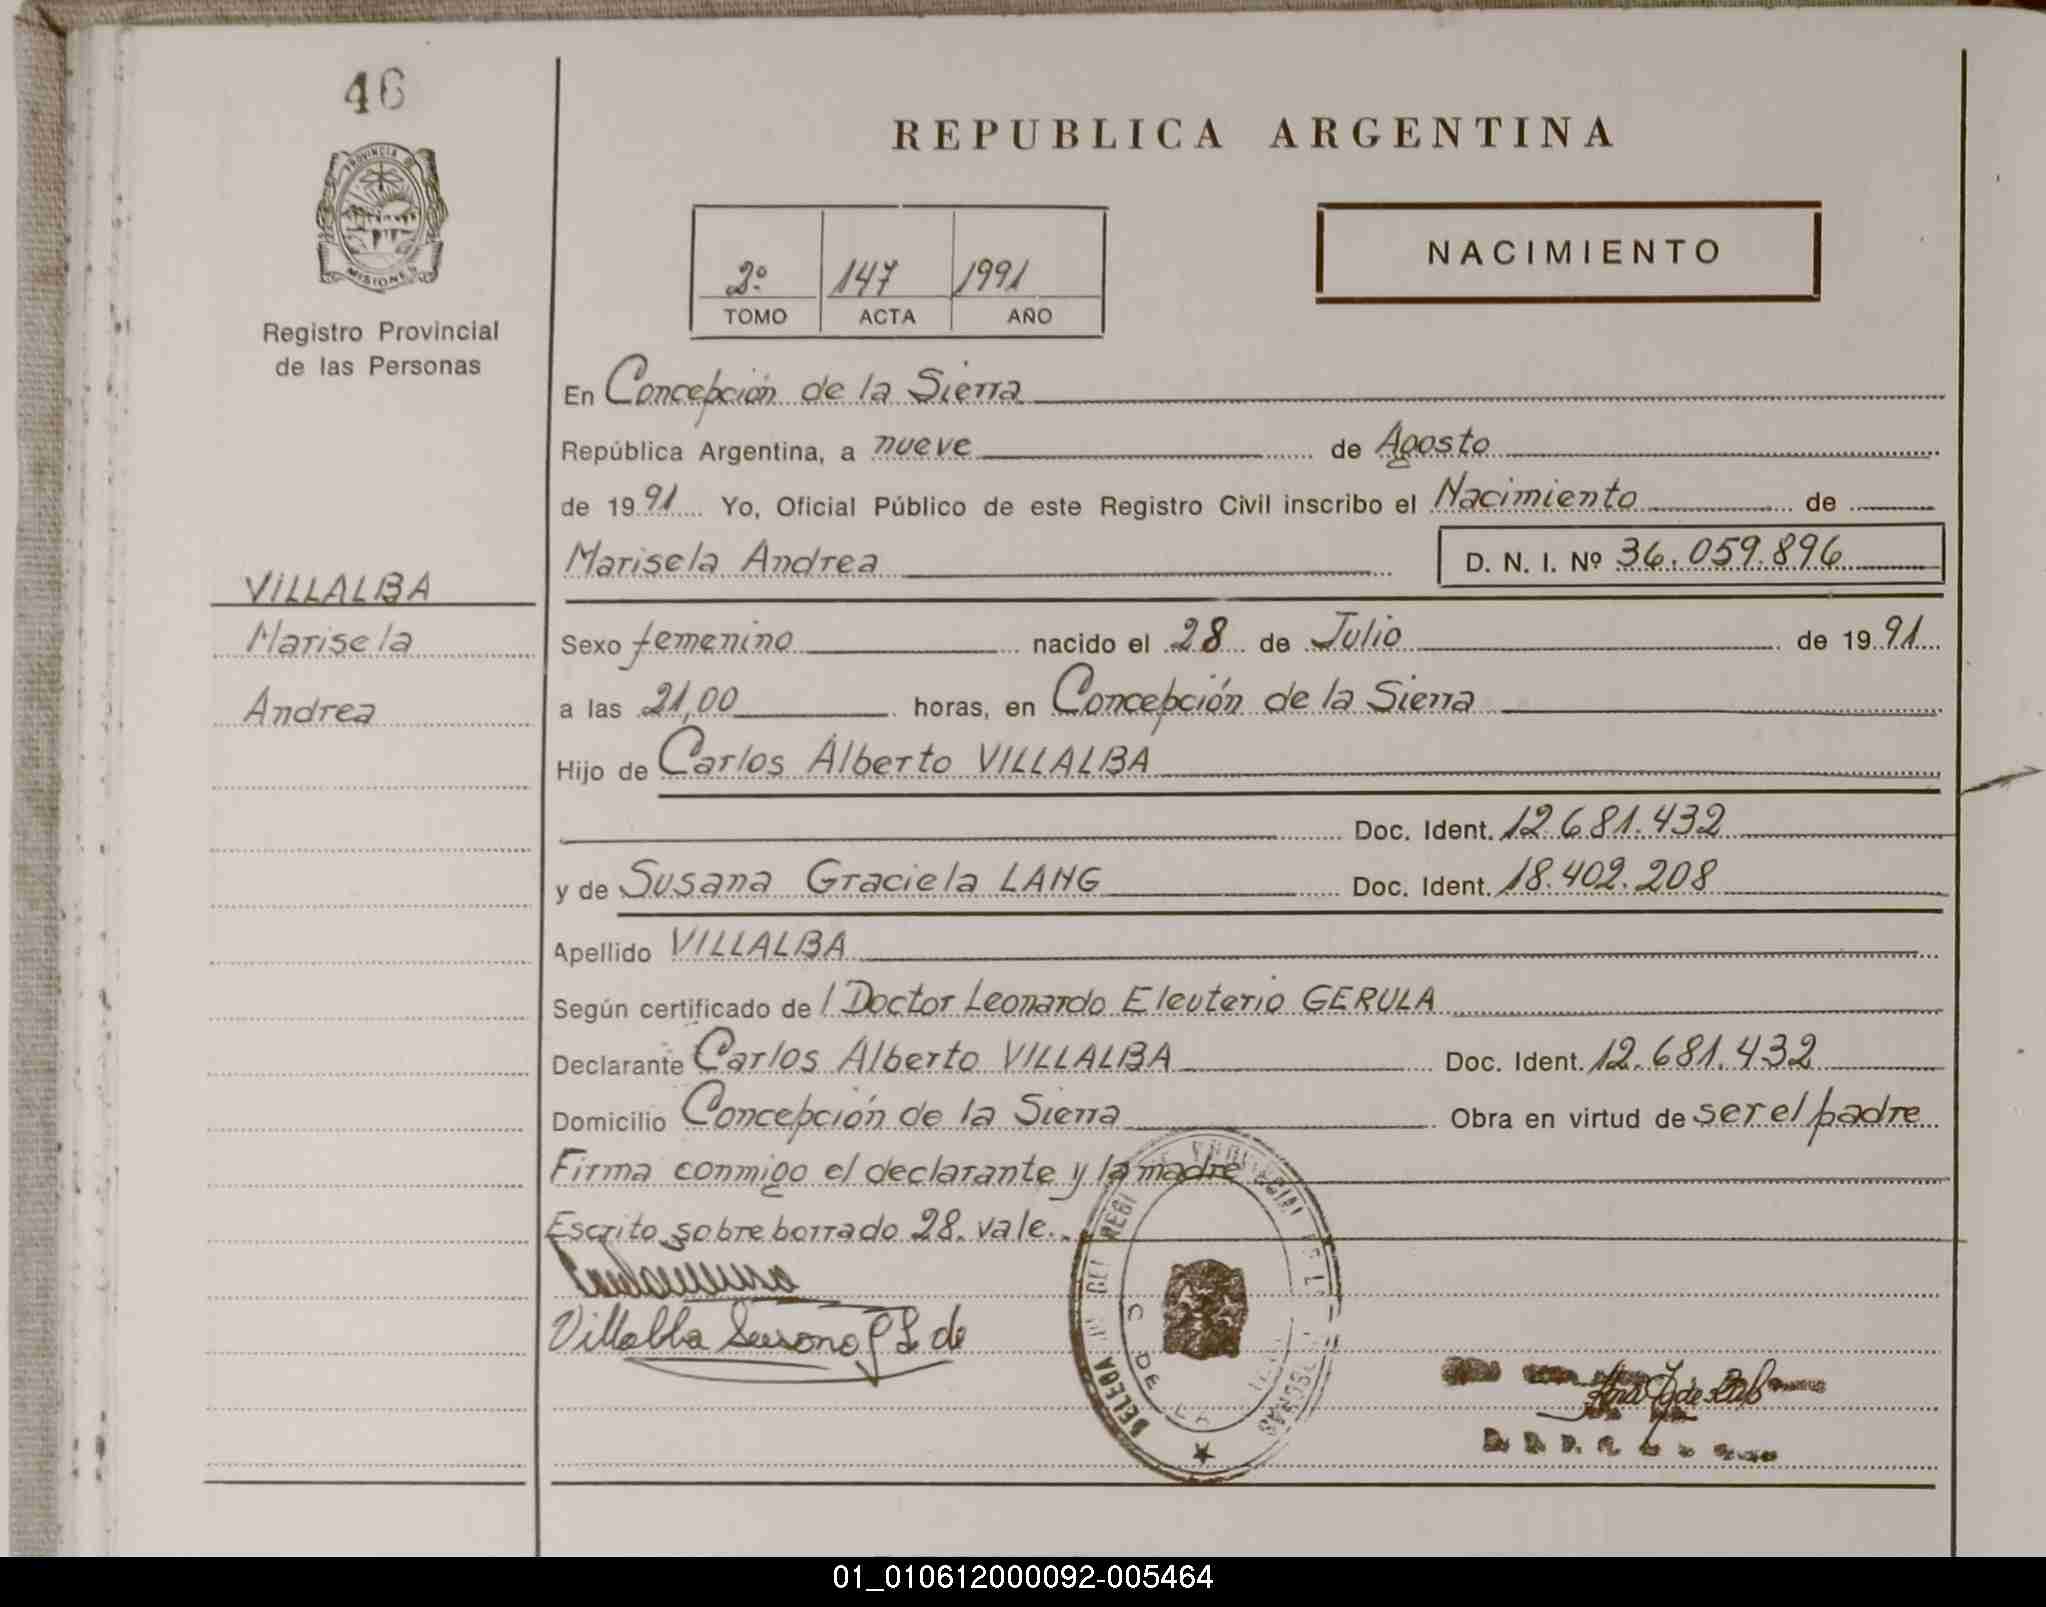 46
PROVINCIA DE
MISIONES
Registro Provincial
de las Personas
VILLALBA
Marisela
Andrea
REPUBLICA ARGENTINA
NACIMIENTO
2º 147 1991
TOMO ACTA AÑO
En Concepción de la Sierra
República Argentina, a nueve de Agosto
de 1991 Yo, Oficial Público de este Registro Civil inscribo el Nacimiento de
Marisela Andrea D. N. I. Nº 36.059.896
Sexo femenino nacido el 28 de Julio de 1991
a las 21,00 horas, en Concepción de la Sierra
Hijo de Carlos Alberto VILLALBA
Doc. Ident. 12.681.432
y de Susana Graciela LANG Doc. Ident. 18.402.208
Apellido VILLALBA
Según certificado de l Doctor Leonardo Eleuterio GERULA
Declarante Carlos Alberto VILLALBA Doc. Ident. 12.681.432
Domicilio Concepción de la Sierra Obra en virtud de ser el padre
Firma conmigo el declarante y la madre
Escrito sobre borrado 28. vale..
Villalba Susana G L de
01_010612000092-005464